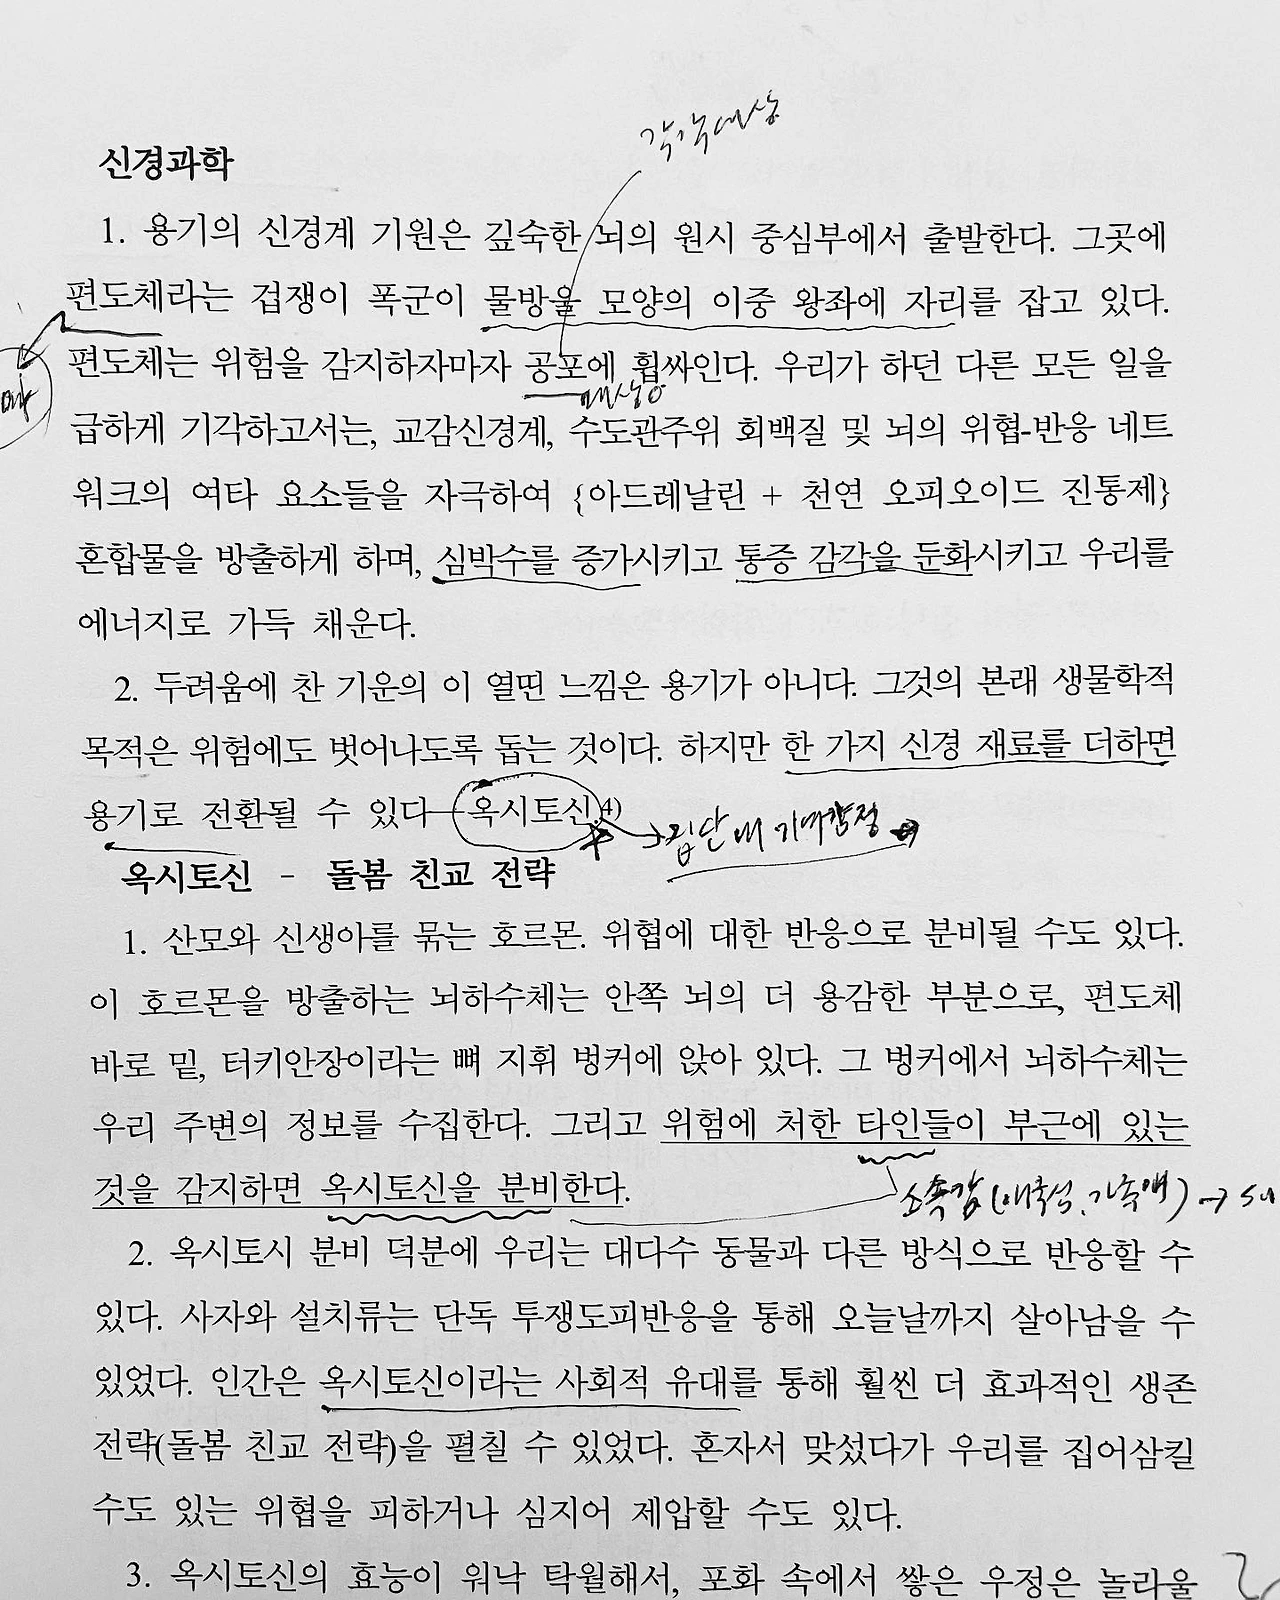 신경과학
1. 용기의 신경계 기원은 깊숙한 뇌의 원시 중심부에서 출발한다. 그곳에
편도체라는 겁쟁이 폭군이 물방울 모양의 이중 왕좌에 자리를 잡고 있다.
편도체는 위험을 감지하자마자 공포에 휩싸인다. 우리가 하던 다른 모든 일을
급하게 기각하고서는, 교감신경계, 수도관주위 회백질 및 뇌의 위협-반응 네트
워크의 여타 요소들을 자극하여 {아드레날린 + 천연 오피오이드 진통제}
혼합물을 방출하게 하며, 심박수를 증가시키고 통증 감각을 둔화시키고 우리를
에너지로 가득 채운다.
2. 두려움에 찬 기운의 이 열띤 느낌은 용기가 아니다. 그것의 본래 생물학적
목적은 위험에도 벗어나도록 돕는 것이다. 하지만 한 가지 신경 재료를 더하면
용기로 전환될 수 있다—옥시토신.4)
집단 내
옥시토신 - 돌봄 친교 전략
1. 산모와 신생아를 묶는 호르몬. 위협에 대한 반응으로 분비될 수도 있다.
이 호르몬을 방출하는 뇌하수체는 안쪽 뇌의 더 용감한 부분으로, 편도체
바로 밑, 터키안장이라는 뼈 지휘 벙커에 앉아 있다. 그 벙커에서 뇌하수체는
우리 주변의 정보를 수집한다. 그리고 위험에 처한 타인들이 부근에 있는
것을 감지하면 옥시토신을 분비한다.
소속감 (애국심, 가족애) →
2. 옥시토시 분비 덕분에 우리는 대다수 동물과 다른 방식으로 반응할 수
있다. 사자와 설치류는 단독 투쟁도피반응을 통해 오늘날까지 살아남을 수
있었다. 인간은 옥시토신이라는 사회적 유대를 통해 훨씬 더 효과적인 생존
전략(돌봄 친교 전략)을 펼칠 수 있었다. 혼자서 맞섰다가 우리를 집어삼킬
수도 있는 위협을 피하거나 심지어 제압할 수도 있다.
3. 옥시토신의 효능이 워낙 탁월해서, 포화 속에서 쌓은 우정은 놀라울